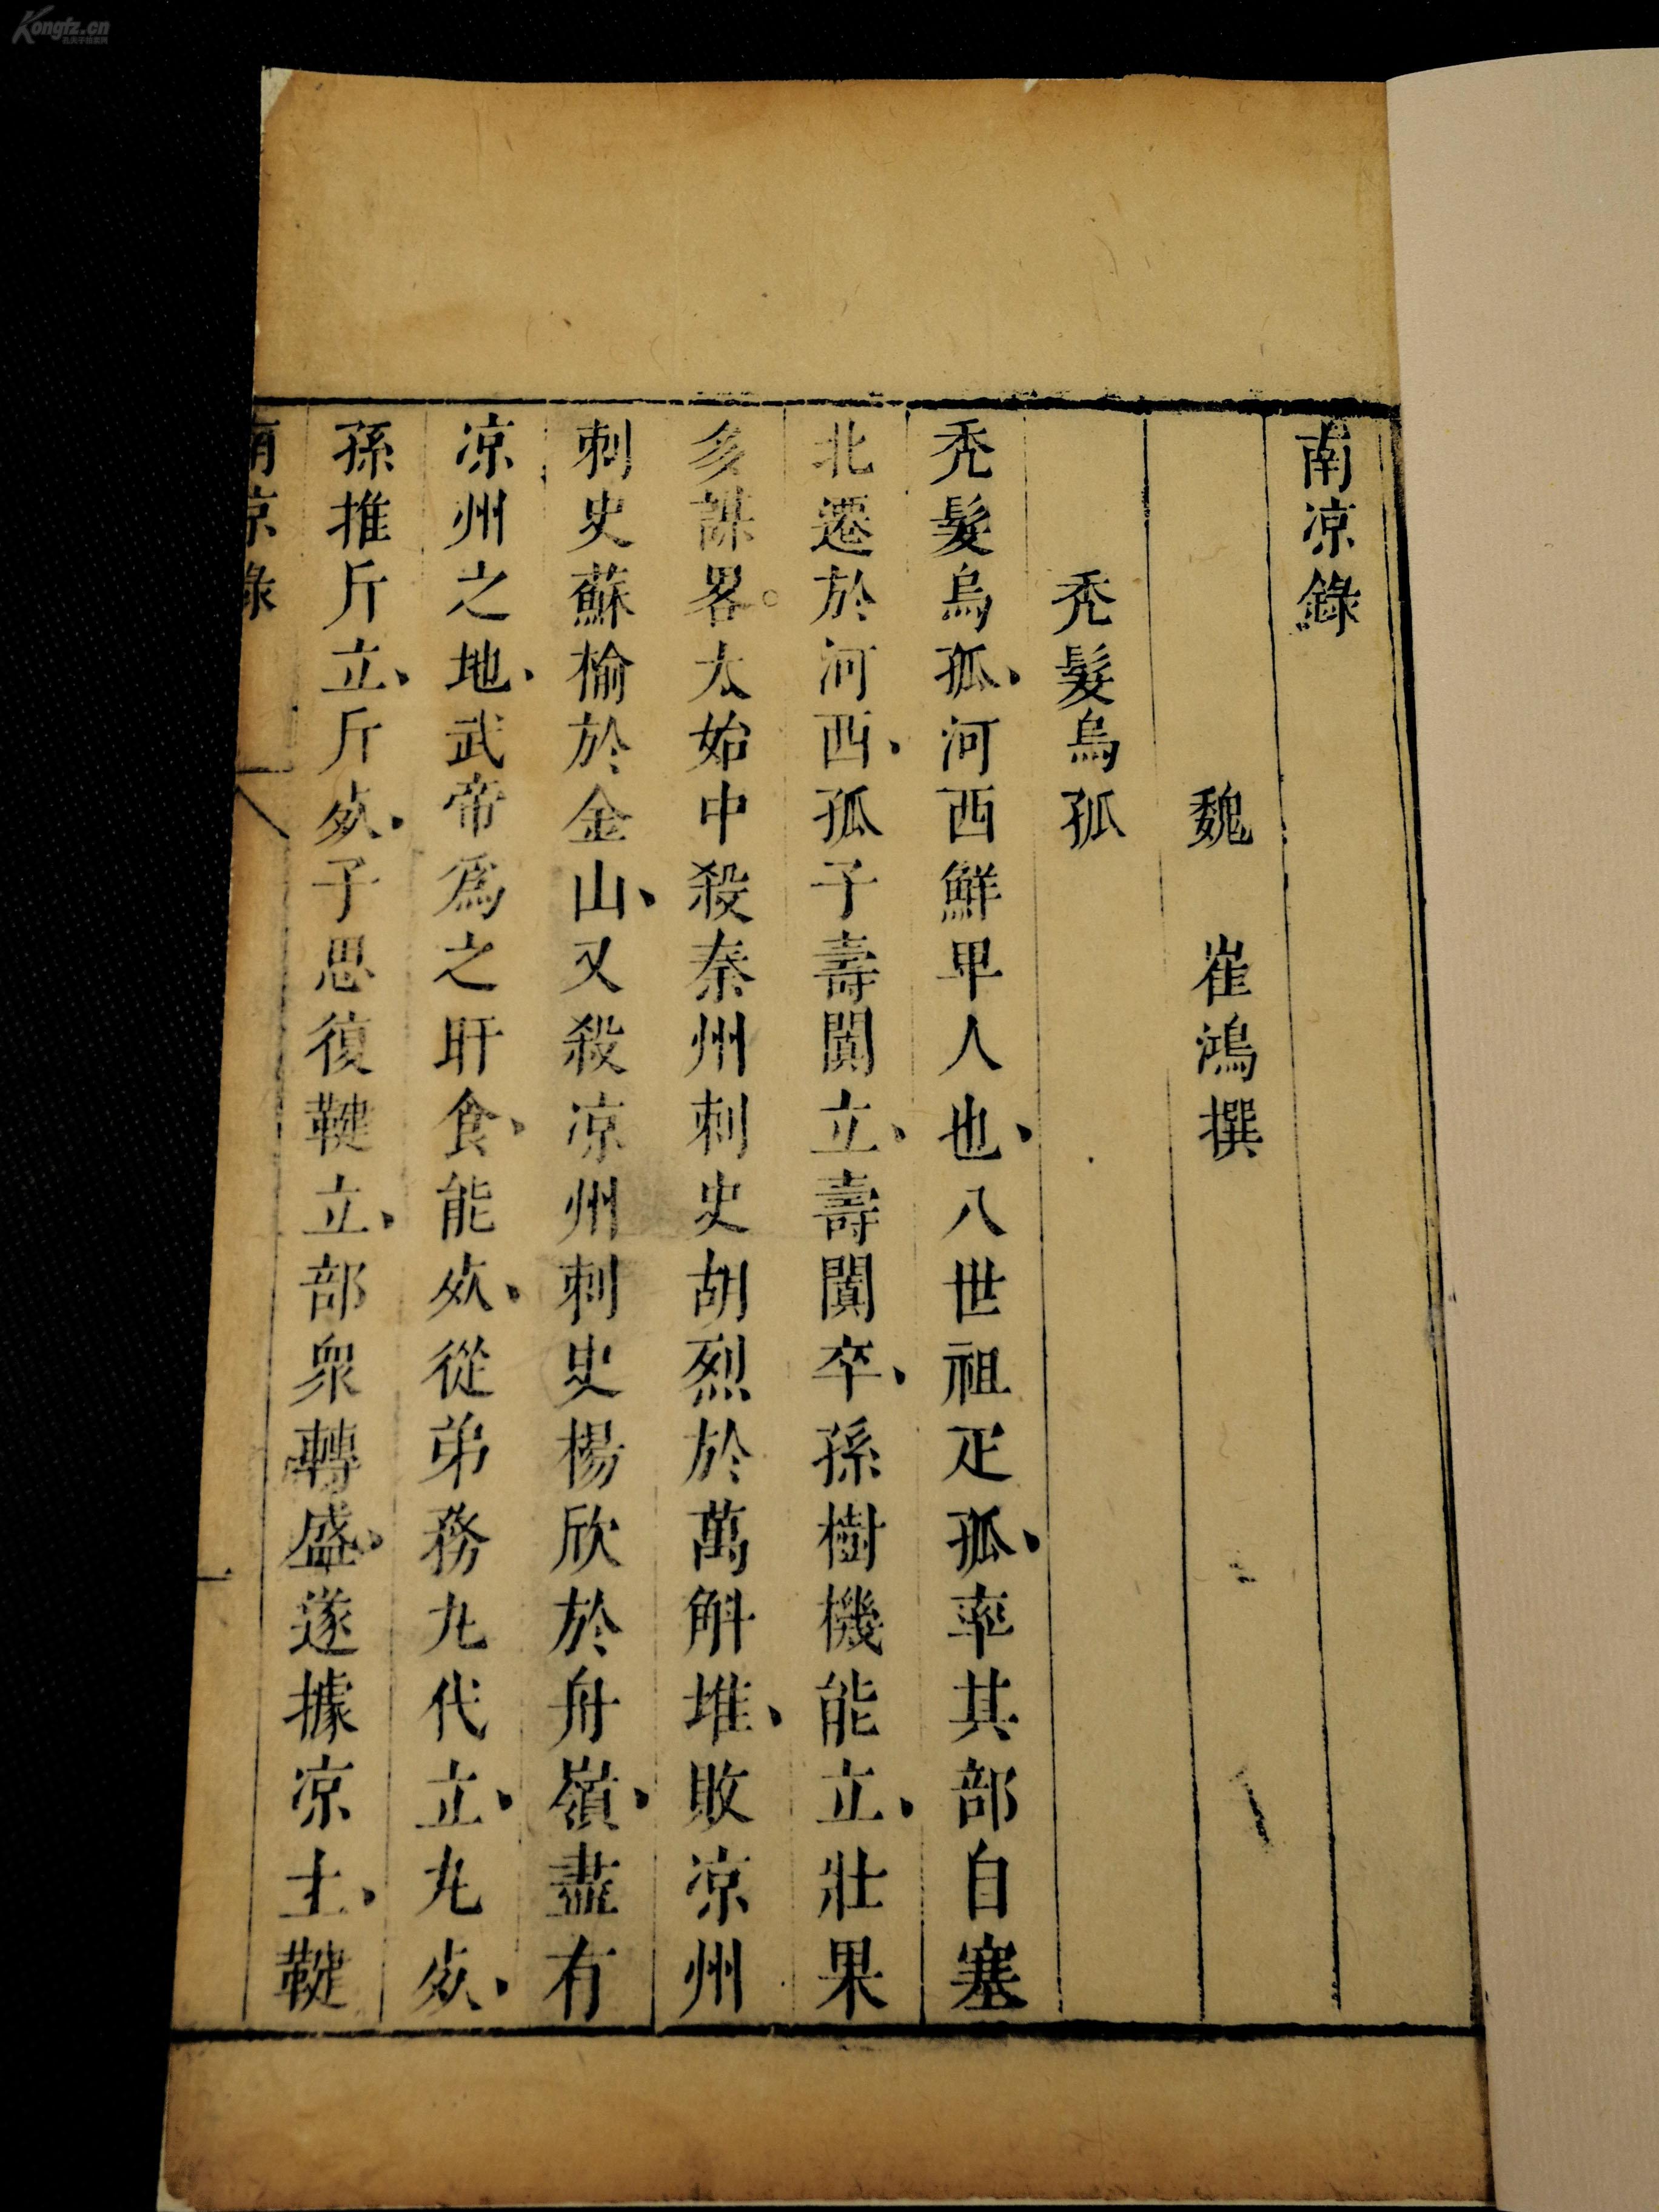 Kongfz.cn
孔夫子旧书网
南凉錄
魏　崔鴻撰
禿髮烏孤
禿髮烏孤、河西鮮卑人也、八世祖疋孤、率其部自塞
北遷於河西、孤子壽闐立、壽闐卒、孫樹機能立、壯果
多謀畧。太始中殺秦州刺史胡烈於萬斛堆、敗凉州
刺史蘇榆於金山、又殺凉州刺史楊欣於舟嶺、盡有
凉州之地、武帝爲之旰食、能㱕、從弟務九代立、九㱕、
孫推斤立、斤㱕、子思復鞬立、部衆轉盛、遂據凉土、鞬
南凉錄
一